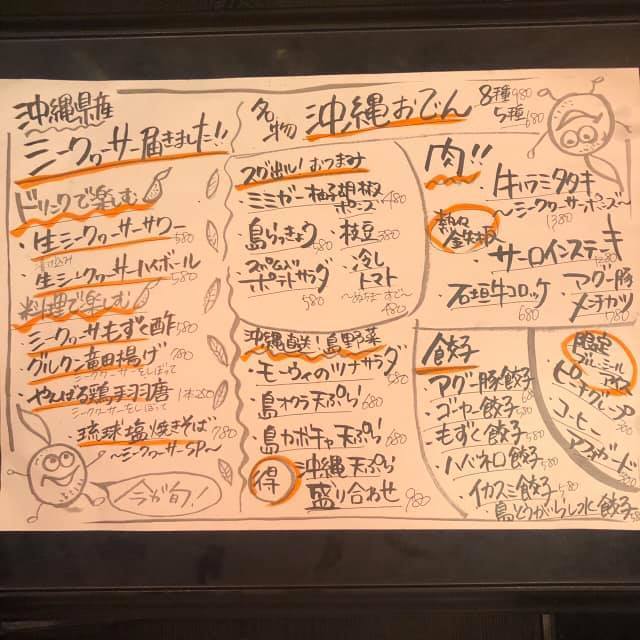 沖縄県産
シークヮーサー届きました!!
ドリンクで楽しむ
生シークヮーサーサワー 580
生シークヮーサーハイボール 580
料理で楽しむ
シークヮサーもずく酢 580
グルクン竜田揚げ 780
シークヮーサーをしぼって
やんばる鶏手羽唐 1本280
シークヮーサーをしぼって
琉球塩焼きそば 780
〜シークヮーサーSP〜
今が旬!
名物 沖縄おでん 8種 980
5種 680
スグ出し!おつまみ
ミミガー柚子胡椒ポン酢 480
島らっきょう 580
・枝豆 380
スパム入りポテトサラダ 580
・冷しトマト
480
沖縄直送!島野菜
・モーウィのツナサラダ 680
・島オクラ天ぷら 680
・島カボチャ天ぷら 680
得 沖縄天ぷら
盛り合わせ 980
肉!!
・牛ハラミタタキ
〜シークヮーサーポン酢〜
1380
熱々鉄板
・サーロインステーキ
・石垣牛コロッケ 680
・アグー豚
メンチカツ 780
餃子
・アグー豚餃子
・ゴーヤー餃子 580
・もずく餃子 580
・ハバネロ餃子 580
・イカスミ餃子 580
・島とうがらし水餃子 580
限定
・ピンクグァバ
・コーヒー